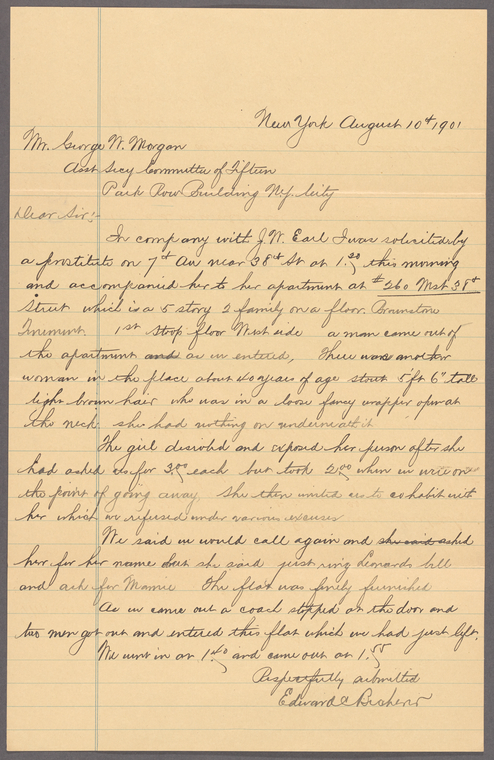 New York August 10th 1901
Mr. George W. Morgan
Asst Secy Committee of Fifteen
Park Row Building N.Y. City
Dear Sir:-
In company with J. W. Earl I was solicited by
a prostitute on 7th Av near 38th St at 1.30 this morning
and accompanied her to her apartment at #260 West 38th
Street which is a 5 story 2 family on a floor. Brownstone
Tenement. 1st Stoop floor West side a man came out of
the apartment and as we entered, There was another
woman in the place about 40 years of age stout 5 ft 6" tall
light brown hair who was in a loose fancy wrapper open at
the neck she had nothing on underneath it
The girl disrobed and exposed her person after she
had asked us for 3.00 each but took 2.00 when we were on
the point of going away, She then invited us to cohabit with
her which we refused under various excuses
We said we would call again and she said asked
her for her name but she said just ring Leonards bell
and ask for Mamie The flat was finely furnished
As we came out a coach stopped at the door and
two men got out and entered this flat which we had just left.
We went in at 1.40 and came out at 1.55
Respectfully submitted
Edward C